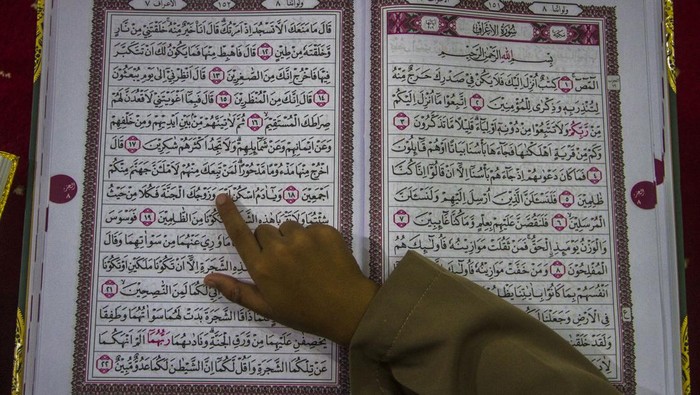 ولواننا ٨
سُورَةُ الْأَعْرَافِ
بِسْمِ اللَّهِ الرَّحْمَٰنِ الرَّحِيمِ
الٓمٓصٓ ۝١ كِتَٰبٌ أُنزِلَ إِلَيْكَ فَلَا يَكُن فِي صَدْرِكَ حَرَجٌ مِّنْهُ
لِتُنذِرَ بِهِ وَذِكْرَىٰ لِلْمُؤْمِنِينَ ۝٢ اتَّبِعُوا مَا أُنزِلَ إِلَيْكُم
مِّن رَّبِّكُمْ وَلَا تَتَّبِعُوا مِن دُونِهِ أَوْلِيَاءَ قَلِيلًا مَّا تَذَكَّرُونَ ۝٣
وَكَم مِّن قَرْيَةٍ أَهْلَكْنَٰهَا فَجَاءَهَا بَأْسُنَا بَيَٰتًا أَوْ هُمْ قَائِلُونَ
۝٤ فَمَا كَانَ دَعْوَىٰهُمْ إِذْ جَاءَهُم بَأْسُنَا إِلَّا أَن قَالُوا إِنَّا كُنَّا
ظَٰلِمِينَ ۝٥ فَلَنَسْـَٔلَنَّ الَّذِينَ أُرْسِلَ إِلَيْهِمْ وَلَنَسْـَٔلَنَّ
الْمُرْسَلِينَ ۝٦ فَلَنَقُصَّنَّ عَلَيْهِم بِعِلْمٍ وَمَا كُنَّا غَائِبِينَ ۝٧
وَالْوَزْنُ يَوْمَئِذٍ الْحَقُّ فَمَن ثَقُلَتْ مَوَٰزِينُهُ فَأُولَٰئِكَ هُمُ
الْمُفْلِحُونَ ۝٨ وَمَنْ خَفَّتْ مَوَٰزِينُهُ فَأُولَٰئِكَ
أَنفُسَهُم بِمَا كَانُوا بِـَٔايَٰتِنَا
فِي الْأَرْضِ وَجَعَلْنَا
وَلَقَدْ
الأعراف ٧ ١٥٢ ولواننا ٨
قَالَ مَا مَنَعَكَ أَلَّا تَسْجُدَ إِذْ أَمَرْتُكَ قَالَ أَنَا خَيْرٌ مِّنْهُ خَلَقْتَنِي مِن نَّارٍ
وَخَلَقْتَهُ مِن طِينٍ ۝١٢ قَالَ فَاهْبِطْ مِنْهَا فَمَا يَكُونُ لَكَ أَن تَتَكَبَّرَ
فِيهَا فَاخْرُجْ إِنَّكَ مِنَ الصَّٰغِرِينَ ۝١٣ قَالَ أَنظِرْنِي إِلَىٰ يَوْمِ يُبْعَثُونَ
۝١٤ قَالَ إِنَّكَ مِنَ الْمُنظَرِينَ ۝١٥ قَالَ فَبِمَا أَغْوَيْتَنِي لَأَقْعُدَنَّ لَهُمْ
صِرَٰطَكَ الْمُسْتَقِيمَ ۝١٦ ثُمَّ لَـَٔاتِيَنَّهُم مِّن بَيْنِ أَيْدِيهِمْ وَمِنْ خَلْفِهِمْ
وَعَنْ أَيْمَٰنِهِمْ وَعَن شَمَائِلِهِمْ وَلَا تَجِدُ أَكْثَرَهُمْ شَٰكِرِينَ ۝١٧ قَالَ
اخْرُجْ مِنْهَا مَذْءُومًا مَّدْحُورًا لَّمَن تَبِعَكَ مِنْهُمْ لَأَمْلَأَنَّ جَهَنَّمَ مِنكُمْ
أَجْمَعِينَ ۝١٨ وَيَٰـَٔادَمُ اسْكُنْ أَنتَ وَزَوْجُكَ الْجَنَّةَ فَكُلَا مِنْ حَيْثُ
شِئْتُمَا وَلَا تَقْرَبَا هَٰذِهِ الشَّجَرَةَ فَتَكُونَا مِنَ الظَّٰلِمِينَ ۝١٩ فَوَسْوَسَ
مَا وُۥرِيَ عَنْهُمَا مِن سَوْءَٰتِهِمَا وَقَالَ
هَٰذِهِ الشَّجَرَةِ إِلَّا أَن تَكُونَا مَلَكَيْنِ أَوْ تَكُونَا
لَكُمَا لَمِنَ النَّٰصِحِينَ ۝٢١
ذَاقَا الشَّجَرَةَ بَدَتْ لَهُمَا سَوْءَٰتُهُمَا وَطَفِقَا
يَخْصِفَانِ عَلَيْهِمَا مِن وَرَقِ الْجَنَّةِ وَنَادَىٰهُمَا رَبُّهُمَا أَلَمْ أَنْهَكُمَا
عَن تِلْكُمَا الشَّجَرَةِ وَأَقُل لَّكُمَا إِنَّ الشَّيْطَٰنَ لَكُمَا عَدُوٌّ مُّبِينٌ ۝٢٢